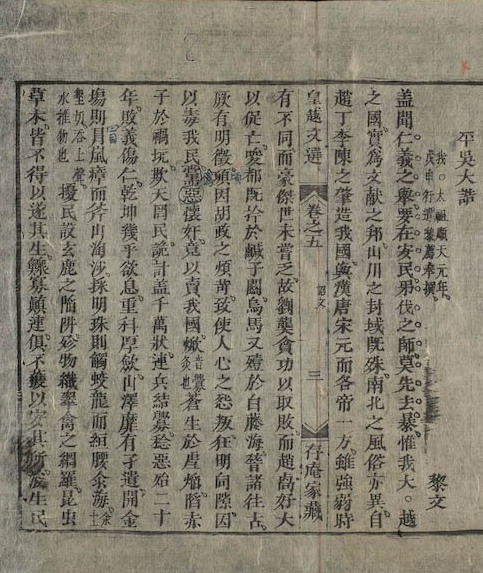 平吳大誥
我○太祖順天元年。
戊申行遣黎廌奉撰。
黎文
蓋聞仁義之舉。要在安民。弔伐之師。莫先去暴。惟我大。越
之國。實爲文献之邦。山川之封域既殊。南北之風俗亦異。自
趙丁李陳之肇造我國。與漢唐宋元而各帝一方。雖強弱時
皇越文選 卷之五 詔文 三 存庵家藏
有不同而豪傑世未嘗乏。故劉龑貪功以取敗而趙卨好大
以促亡。唆都既拾於鹹子關烏馬又殪於白藤海嵇諸往古。
厥有明徵。頃因胡政之煩苛。致使人心之怨叛。狂明向隙。因
以毒我民。當惡懷奸竟以賣我國。焮音釁炙也蒼生於虐熖陷赤
子於禍坑。欺天罔民。詭計盖千萬狀。連兵結釁。稔惡殆二十
年。敗義傷仁。乾坤幾乎欲息。重科厚歛。山澤靡有孑遺。開金
塲則冒嵐瘴而斧山淘沙。採明珠則觸蛟龍而絙腰汆海。汆土
墾奴吞上聲
水推物也擾民設玄鹿之陷阱。殄物織翠禽之網羅。昆虫
草木。皆不得以遂其生。鰥寡顛連。俱不獲以安其所。浚生民